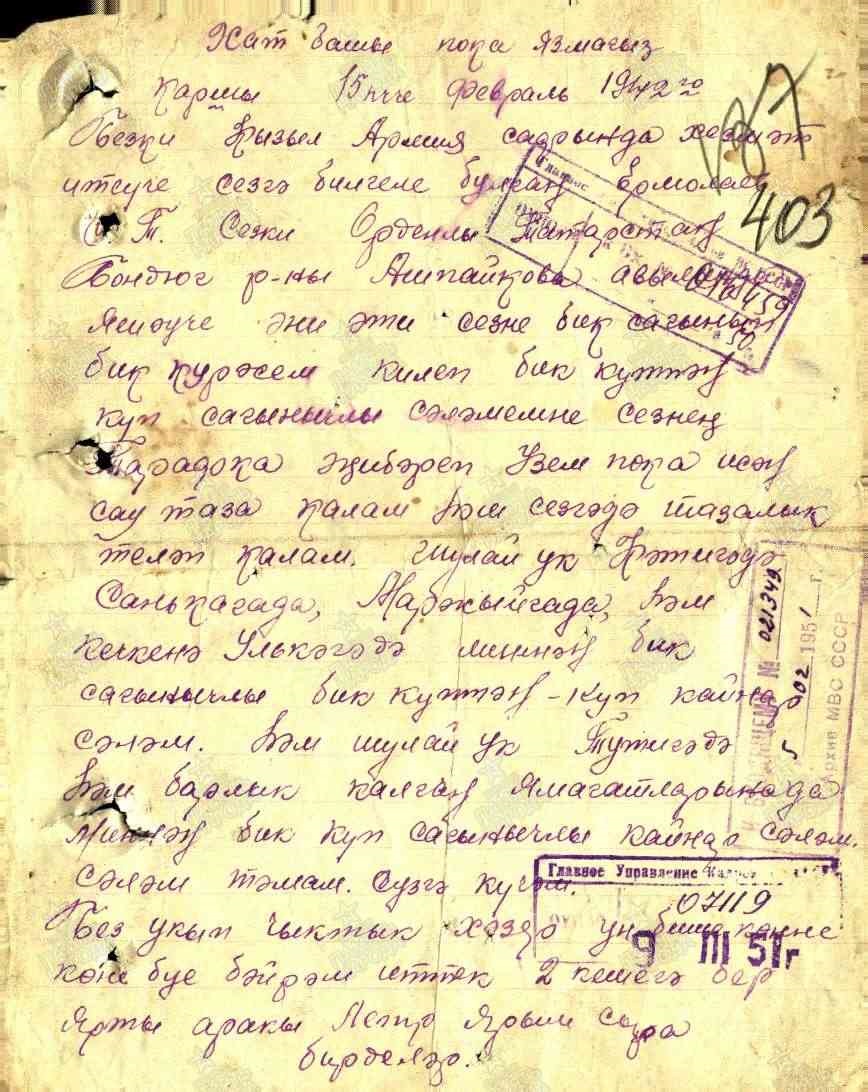 Хат башы пока язмагыз
каршы 15нче февраль 1942 го
Безки Кызыл Армия сафрында хезмәт
итүче сезгә билгеле булган Ермолаев
Т. Сезки Орденлы Татарстан
Бондюг р-ны авылында
Яшәүче әни әти сезне бик сагынып
бик күрәсем килеп бик күптән
күп сагынышлы сәләмемне сезнең
җибәреп Үзем пока исән
сау таза калам һәм сезгәдә тазалык
теләп калам. шулай ук Кәтигәдә
Санькагада, һәм
кечкенә Улькәгәдә миннән бик
сагынычлы бик күптән-күп кайнар
сәләм. һәм шулай ук Тутигәдә
һәм барлык калган Ямагатларынада
Миннән бик күп сагынычлы кайнар сәләм.
сәләм тәмам. Сүзгә күчәм.
Без укып чыктык хәзер ун көнне
көне буе бәйрәм иттек 2 кешегә бер
ярты аракы Летр ярым сыра
бирделәр.
187
403
Главное
016459
50
№ 021349
5 02 1951 г.
Архив МВС СССР
Главное Управление Кадров
07119
9 III 51г